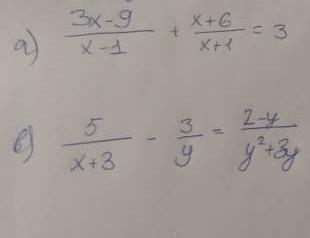 а) (3x-9)/(x-1) + (x+6)/(x+1) = 3
в) 5/(x+3) - 3/y = (2-y)/(y²+3y)